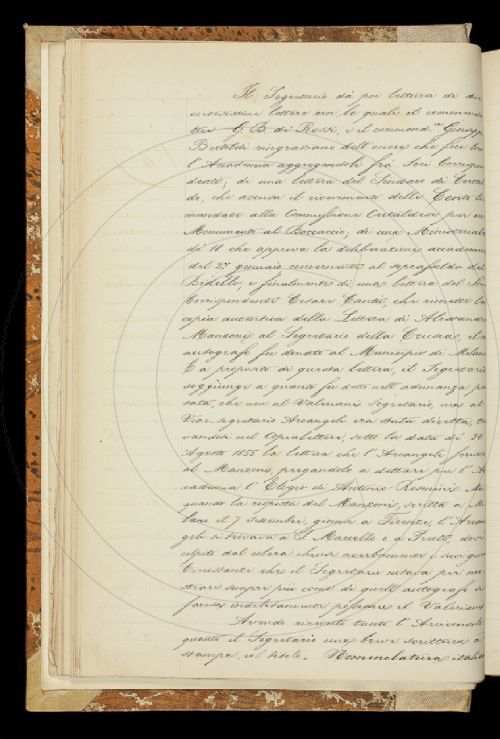 Il Segretario dà poi lettura di due
lettere con le quali il commenda
G. B. de Rossi, e il commend. Giuseppe
Bertoldi ringraziano dell'onore che fece loro
l'Accademia aggregandoli fra Soci Corrispon
denti; di una lettera del Sindaco di Certal
do, che accusa il ricevimento delle Cento li
mandate alla Commissione Certaldese per un
Monumento al Boccaccio; di una Ministeriale
del 18 che approva la deliberazione accademica
del 27 gennaio concernente al del
Bidello, e finalmente di una lettera del Socio
Corrispondente Cesare Cantù, che rimette la
copia autentica della Lettera di Alessandro
Manzoni al Segretario della Crusca, il
autografo fu donato al Municipio di Milano
E a proposito di questa lettera, il Segretario
soggiunge a quanto fu detto nell'adunanza pas
sata, che non al Valeriani Segretario, ma al
Vice-segretario Arcangeli era stata diretta,
vandosi nel Copialettere, sotto la data di 26
Agosto 1855 la lettera che l'Arcangeli scrisse
al Manzoni, pregandolo a dettare per l'Ac
cademia l'Elogio di Antonio Rosmini. Ma
quando la risposta del Manzoni, scritta a
il 7 Settembre, giunse a Firenze, l'Arcan
geli si trovava a S. Marcello e a Prato, dove
colpito dal colera chiuse i suoi giorni
che il Segretario notava per mo
strare sempre più come di quell'autografo si
fosse indebitamente possessore il Valeriani
Avendo ricevuto tanto l'Arciconsolo
quanto il Segretario una breve scrittura a
stampa, col titolo. Nomenclatura italiana